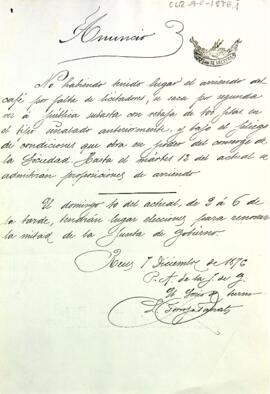 Anuncio
No habiendo tenido lugar el arriendo del
café por falta de licitadores, se saca por segunda
vez á pública subasta con rebaja de 100 ptas en
el tipo señalado anteriormente, y bajo el pliego
de condiciones que obra en poder del conserge de
la Sociedad. Hasta el martes 12 del actual se
admitirán proposiciones de arriendo.
El domingo 10 del actual, de 3 á 6 de
la tarde, tendrán lugar elecciones para renovar
la mitad de la Junta de Gobierno.
Reus 7 Diciembre de 1876
P. A. de la J. de G.
El Socio de turno